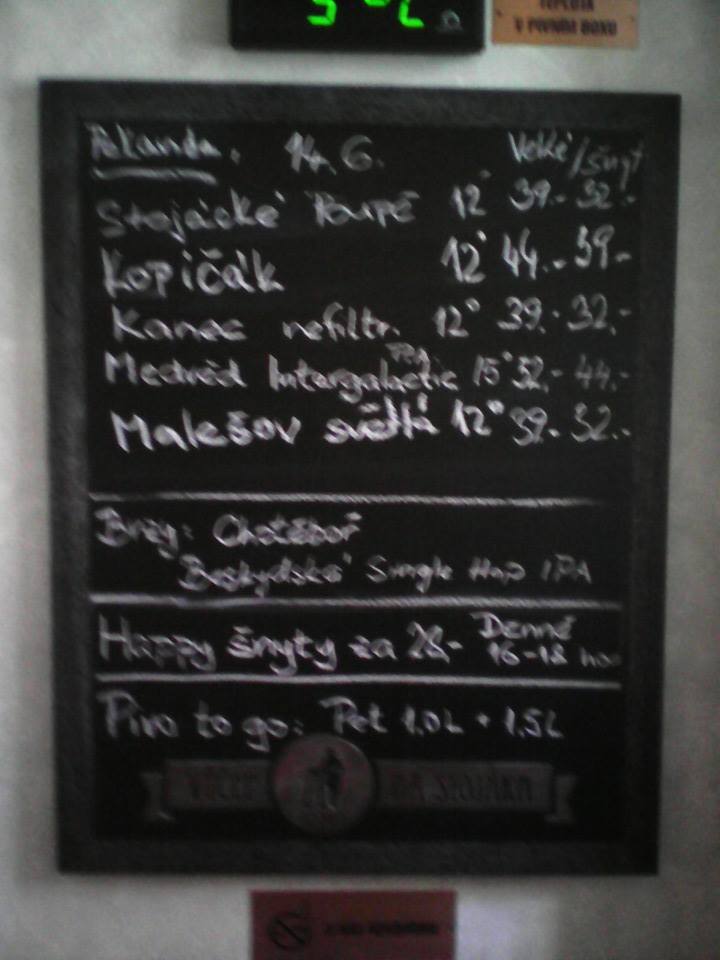 5 °C
TEPLOTA
V PIVNÍM BOXU
14. 6. Velké/šnyt
Stojácké Poupě 12° 39.- 32.-
Kopičák 12° 44.- 39.-
Kanec nefiltr. 12° 39.- 32.-
Medvěd Intergalactic 15° 52.- 44.-
Malešov světlá 12° 39.- 32.-
Brzy: Chotěboř
Beskydské Single Hop IPA
Happy šnyty za 28,- Denně
16-18 hod
Pivo to go: Pet 1.0L + 1.5L
NA STOJÁKA